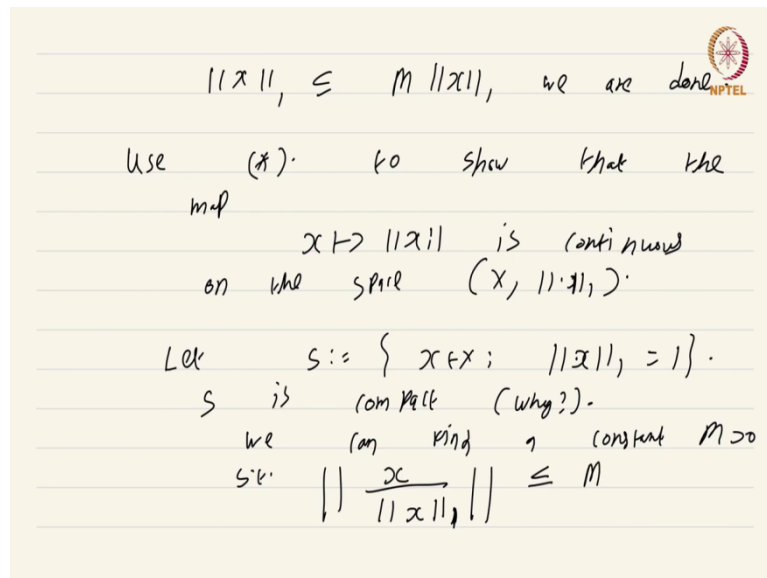 ||x||₁ ≤ M ||x||, we are done.
NPTEL
Use (*). to show that the
map
x ↦ ||x|| is continuous
on the space (X, ||·||₁).
Let S := { x ∈ X ; ||x||₁ = 1}.
S is compact (why?).
we can find a constant M>0
s.t. || x / ||x||₁ || ≤ M